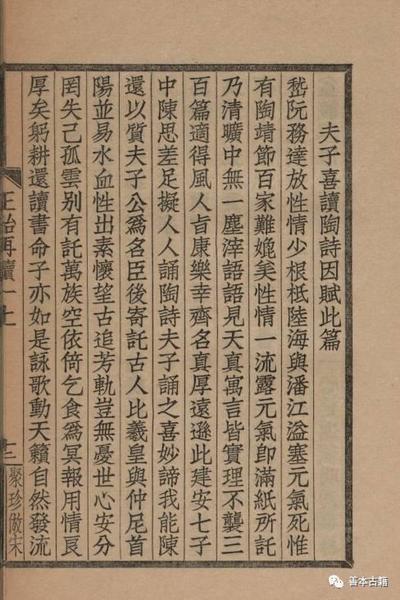 夫子喜讀陶詩因賦此篇
嵇阮務達放性情少根柢陸海與潘江溢塞元氣死惟
有陶靖節百家難媲美性情一流露元氣即滿紙所託
乃清曠中無一塵滓語語見天真寓言皆實理不襲三
百篇適得風人旨康樂幸齊名真厚遠遜此建安七子
中陳思差足擬人人誦陶詩夫子誦之喜妙諦我能陳
還以質夫子公爲名臣後寄託古人比羲皇與仲尼首
陽並易水血性出素懷望古追芳軌豈無憂世心安分
罔失己孤雲别有託萬族空依倚乞食爲冥報用情良
厚矣躬耕還讀書命子亦如是詠歌動天籟自然發流
正始再續一上
三
聚珍倣宋
善本古籍